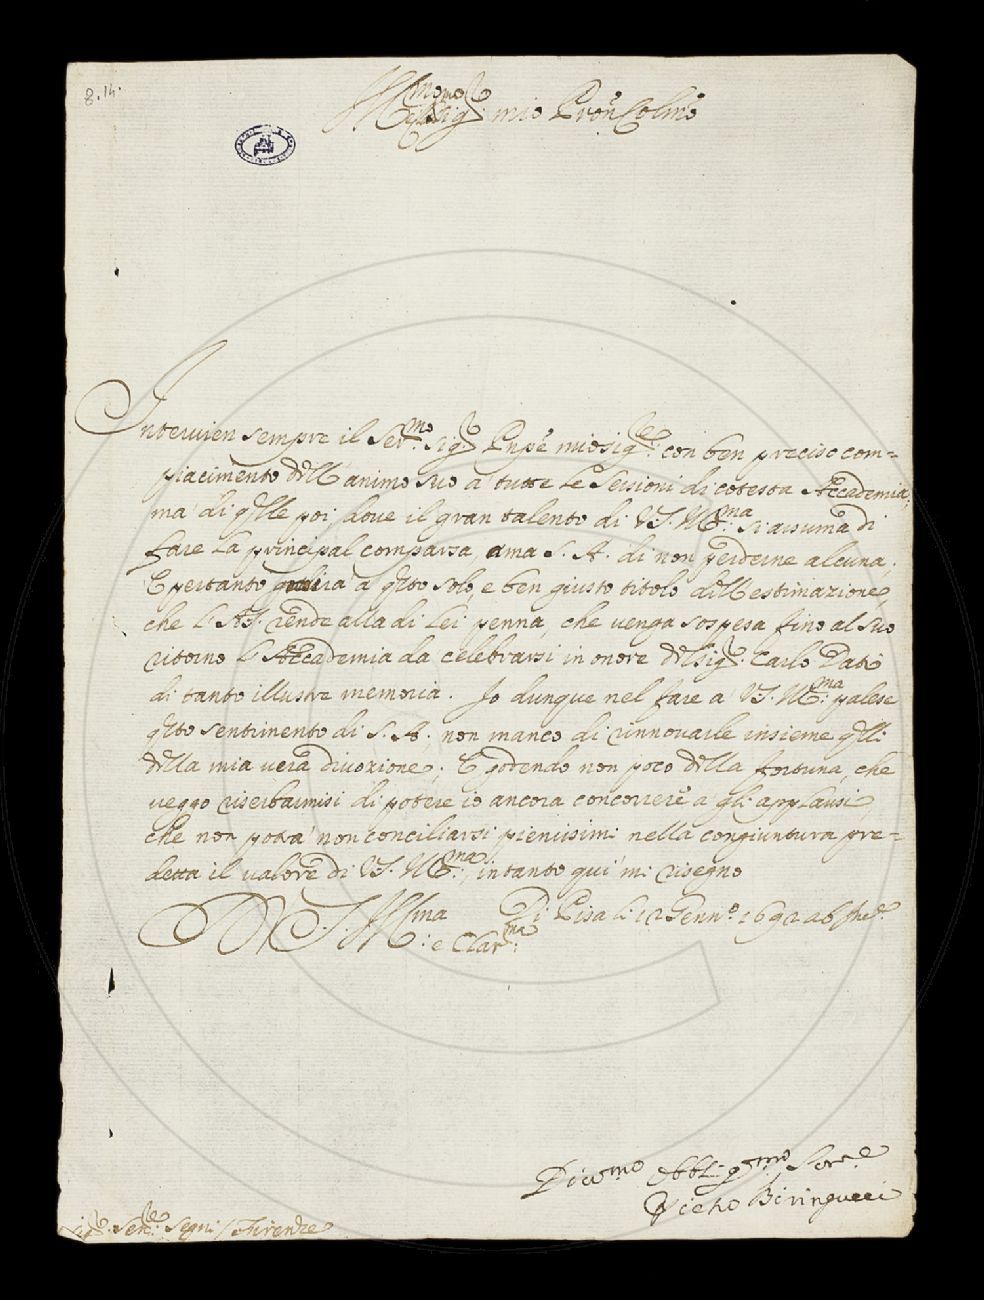 8.14.
Ill.mo Sig.r mio Pron Colmo
Intervien sempre il Ser.mo Sig.r Pnpe mio Sig.re con ben preciso com=
piacimento dell'animo suo à tutte le Sessioni di cotesta Accademia,
ma di qlle poi dove il gran talento di V.S. Ill.ma si assuma di
fare la principal comparsa, ama S. A. di non perderne alcuna;
E pertanto à qsto solo, e ben giusto titolo dell'estimazione,
che l'A.S. rende alla di Lei penna, che venga sospesa fino al suo
ritorno l'Accademia da celebrarsi in onore del Sig.r Carlo Dati
di tanto illustre memoria. Io dunque nel fare à V.S. Ill.ma palese
qsto sentimento di S. A., non manco di rinnovarle insieme qlli
della mia vera divozione; E godendo non poco della fortuna, che
veggo riserbarmisi di potere io ancora concorrere à gli applausi,
che non potrà non conciliarsi pienissimi nella congiuntura pre=
detta il valore di V.S. Ill.ma, intanto qui mi risegno
D V. S. Ill.ma Di Pisa li 12 Genn.o 1692 ab Inc.e
e Clar.ma
Div.mo Obbl.g.mo Ser.e
Pietro Biringucci
Sig.r Sen.re Segni / Firenze